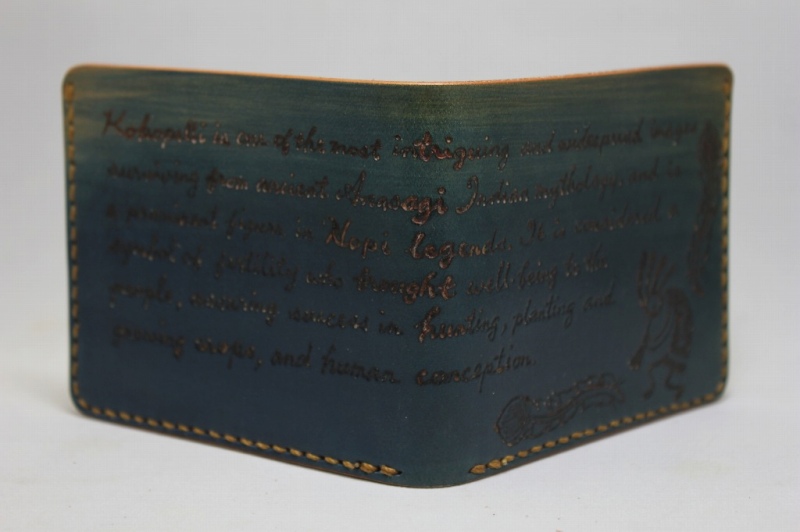 Kokopelli is one of the most intriguing and widespread images
surviving from ancient Anasazi Indian mythology, and is
a prominent figure in Hopi legends. It is considered a
symbol of fertility who brought well-being to the
people, assuring success in hunting, planting and
growing crops, and human conception.